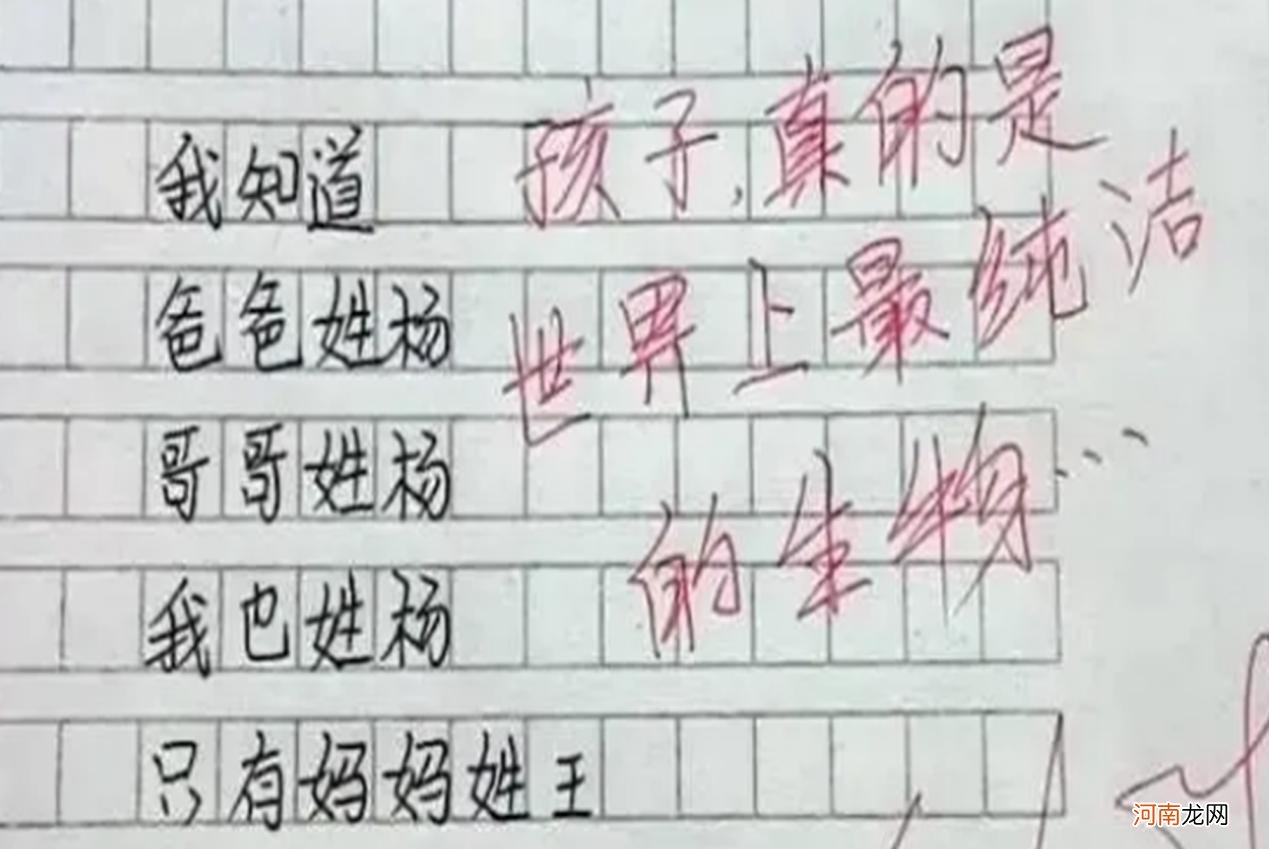 我知道
爸爸姓杨
哥哥姓杨
我也姓杨
只有妈妈姓王
孩子,真的是
世界上最纯洁
的生物...
河南龙网